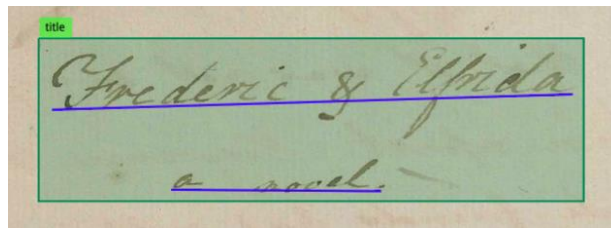 title
Frederic & Elfrida
a novel.